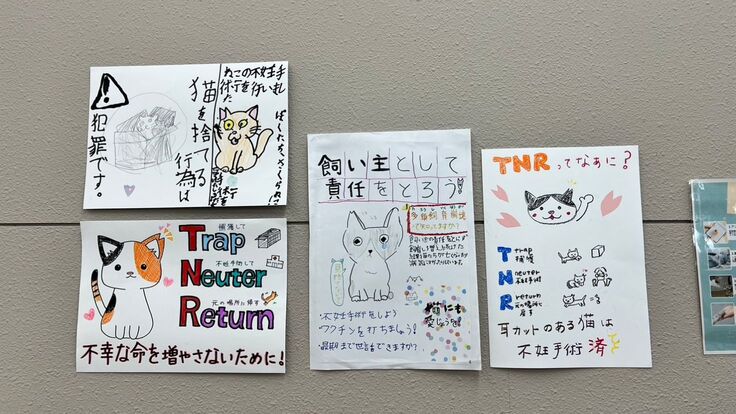 猫を捨てる
行為は
犯罪です。
ねこの不妊手
術を行い
捕獲して
Trap
不妊手術して
Neuter
元の場所に戻す
Return
不幸な命を増やさないために!
飼い主として
責任をとろう
多頭飼育崩壊
って知ってますか?
・不妊手術をしよう
ワクチンを打ちましょう!
・最期まで世話できますか?
TNRってなぁに?
T trap
捕獲
N neuter
不妊手術
R return
元の場所に
戻す
耳カットのある猫は
不妊手術済